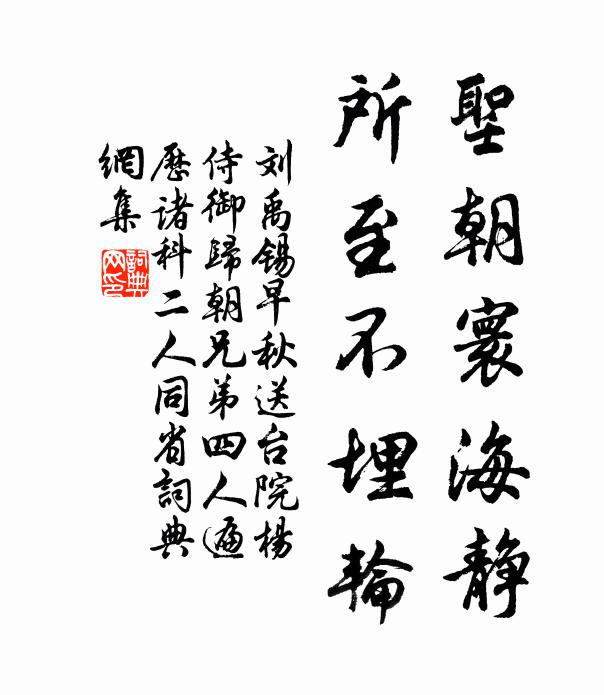 聖朝寰海静
所至不埋輪
刘禹锡早秋送台院楊
侍御歸朝兄弟四人遍
歷诸科二人同省詞典
網集
詞典網印